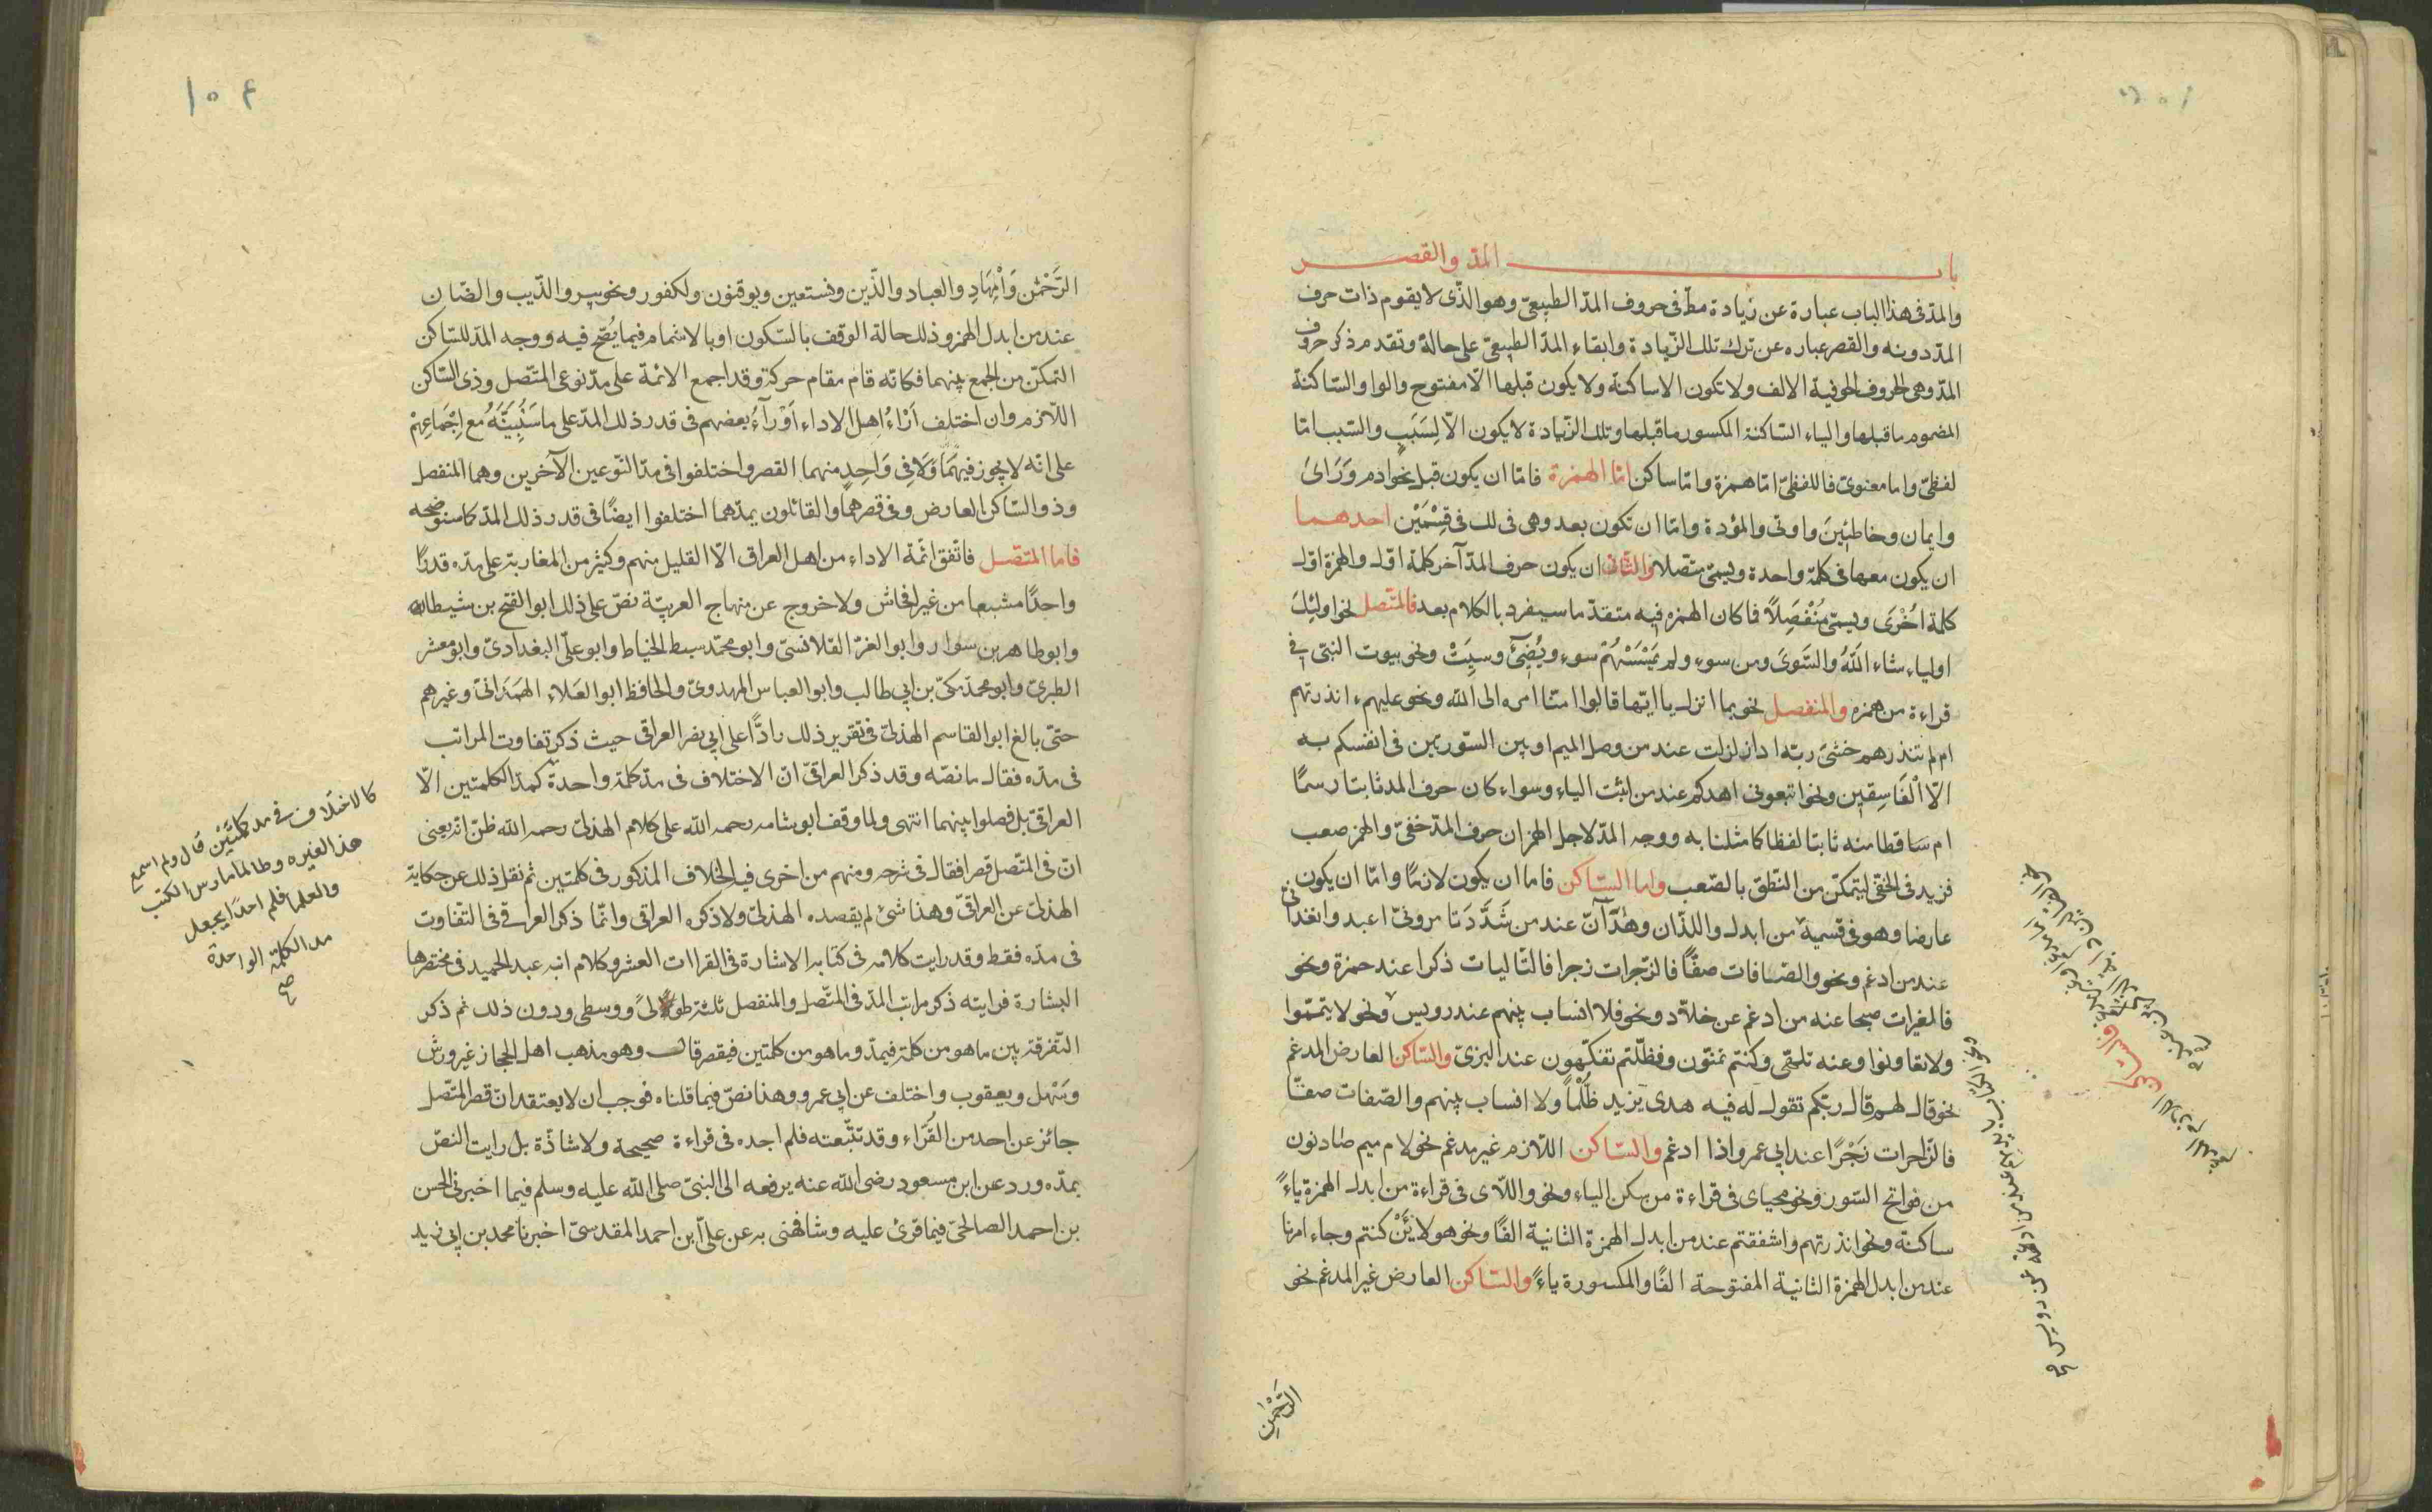 باب المدّ والقصر
والمدّ فى هذا الباب عبارة عن زيادة مطّ فى حروف المدّ الطبيعىّ وهو الذّى لا يقوم ذات حرف
المدّ دونه والقصر عباره عن ترك تلك الزّيادة وابقاء المدّ الطبيعىّ على حالة وتقدم ذكر حروف
المدّ وهى الحروف الجوفية الالف ولا تكون الا ساكنة ولا يكون قبلها الّا مفتوح والواو السّاكنة
المضموم ما قبلها والياء السّاكنة المكسور ما قبلها وتلك الزّيادة لا يكون الّا لِسَبَبٍ والسّبب امّا
لفظىّ واما معنوىّ فاللفظىّ امّا همزة وامّا ساكن امّا الهمزة فامّا ان يكون قبل نحو ادم وَرَاىَ
وايمان وخاطئِينَ واوتى والمؤدة وامّا ان تكون بعد وهى فى لك فى قِسْمَيْن احدهما
ان يكون معها فى كلمة واحدة ويسمّى متّصلا والثّانى ان يكون حرف المدّ آخر كلمة اوّل والهمزة اوّل
كلمة اُخْرَى ويسمّى مُنْفَصِلًا فا كان الهمزه فيه متقدّ ما سيفرد بالكلام بعد فالمتّصل نحو اولئِكَ
اولياء شاء اللّهُ والسّوىَ ومن سوءٍ ولم يَمْسَسْهُمْ سوء ويُضِىٓءُ وسِئَتْ ونحو بيوت النبّى فى
قراءة من همزه والمنفصل نحو بما انزل يا ايّها قالوا امنّا امره الى اللّه ونحو عليهمء انذرتهم
ام لم تنذرهم خشىَ ربّه اذا زلزلت عند من وصل الميم او بين السّورتين فى انفسكم به
الّا الْفَاسِقِين ونحو اتبعونى اهدكم عند من اثبت الياء وسواء كان حرف المد ثابتا رسمًا
ام سَاقطا منه ثابتا لفظا كما مثلنا به ووجه المدّ لاجل الهمز ان حرف المدّ خفىّ والهمز صعب
فزيد فى الخفىّ ليتمكّن من النّطق بالصّعب واما السّاكن فاما ان يكون لازمًا وامّا ان يكون
عارضا وهو فى قسميه من ابدل واللذّان وهٰذآنّ عند من شَدَّدَ تا مرونىّ اعبد واتغدانّى
عند من ادغم ونحو والصّافات صفًّا فالزّجرات زجرا فالتّاليات ذكرا عند حمزة ونحو
فالمغيرات صبحا عنه من ادغم عن خلّاد ونحو فلا انساب بينهم عند رويس ونحو لا يتممّوا
ولا تعاونوا وعنه تلهّى وكنتم تمنّون وفظلّتم تفكّهون عند البزىّ والسّاكن العارض المدغم
نحو قال لهم قال ربّكم تقول لّه فيه هدى يّزيد ظُلْمًا ولا انساب بينهم والصّفات صفّا
فالزّاجرات زَجْرًا عند ابى عمرو اذا ادغم والسّاكن اللّازم غير مدغم نحو لام ميم صاد نون
من فواتح السّور ونحو محياى فى قراءة من سكن الياء ونحو واللاّى فى قراءة من ابدل الهمزة ياءً
ساكنة ونحو انذرتهم واشفقتم عند من ابدل الهمزة الثانية الفًا ونحو هولا ئَنْ كنتم وجاء امرنا
عند من ابدل الهمزة الثانية المفتوحة الفًا والمكسورة ياءً والسّاكن العارض غير المدغم نحو
ونحو الكتاب بايديهم عند من ادغمه عن رويس صح
الرّحْمٰنِ
١٠٤
الرَّحْمٰنِ وَالْمِهَادِ والعباد والدّين ونستعين ويوقنون ولكفور ونحو بير والذّيب والضّان
عند من ابدل الهمز وذلك حالة الوقف بالسّكون او بالاشمام فيما يُصّح فيه ووجه المدّ للسّاكن
التمكّن من الجمع بينهما فكانّه قام مقام حركة وقد اجمع الائمة على مدّ نوعى المتّصل وذى السّاكن
اللّازم وان اختلف اٰرٰاءُ اهل الاداء اَوْ رآءُ بعضهم فى قدر ذلك المدّ على ما سَنُبَيِّنَهُ مع اِجْمَاعِهِمْ
على انّه لا يجوز فيهَمَا وَلَا فِى وَاحِدٍ منهما القصر واختلفوا فى مدّ النّوعين الآخرين وهما المنفصل
وذو السّاكن العارض وفى قصرهما والقائلون بمدّهما اختلفوا ايضًا فى قدر ذلك المدّ كما سنوضحه
فاما المتصّل فاتّفق ائمّة الاداء من اهل العراق الّا القليل منهم وكثير من المغاربة على مدّه قدرًا
واحدًا مشبعا من غير افحاش ولا خروج عن منهاج العربيّة نصّ على ذلك ابو الفتح بن شيطا
وابو طاهر بن سوار وابو العزّ القلانسىّ وابو محمّد سبط الخياط وابو علىّ البغدادىّ وابو معشر
الطبرىّ وابو محمدّ مكىّ بن ابى طالب وابو العباس المهدوىّ والحافظ ابو العَلاء الهمَدَانىّ وغيرهم
حتىّ بالغ ابو القاسم الهذلىّ فى تقرير ذلك رادًّا على ابى نصر العراقى حيث ذكر تفاوت المراتب
فى مدّه فقال ما نصّه وقد ذكر العراقىّ انّ الاختلاف فى مدّ كلمة واحدة كمدّ الكلمتين الّا
العراقىّ بل فصلوا بينهما انتهى ولما وقف ابو شامه رحمه اللّه على كلام الهذلىّ رحمه اللّه ظنّ انّه يعنى
انّ فى المتّصل قصرا فقال فى شرحه ومنهم من اخرى فيه الخلاف المذكور فى كلمتين ثم نقل ذلك عن حكاية
الهذلىّ عن العراقىّ وهذا شئ لم يقصده الهذلىّ ولا ذكره العراقى وانمّا ذكر العراقى فى التّفاوت
فى مدّه فقط وقد رايت كلامه فى كتابه الاشارة فى القراات العشر وكلام ابنه عبد الحميد فى مختصرها
البشارة فرايته ذكر مراتب المدّ فى المتّصل والمنفصل ثلثة طولىً ووسطى ودون ذلك ثم ذكر
التّفرقة بين ما هو من كلمة فيمدّ وما هو من كلمتين فيقصر قال وهو مذهب اهل الحجاز غير ورش
وسَهْل ويعقوب واختلف عن ابى عمرو وهذا نصّ فيما قلناه فوجب ان لا يعتقد انّ قصر المتّصل
جائز عن احد من القُرّاء وقد تتبّعته فلم اجده فى قراءة صحيحة ولا شاذّة بل رايت النصّ
بمدّه ورد عن ابن مسعود رضى اللّه عنه يرفعه الى النبىّ صلى اللّه عليه وسلم فيما اخبرنى الحسن
بن احمد الصالحىّ فيما قرئ عليه وشافهنى به عن علىّ ابن احمد المقدسىّ اخبرنا محمد بن ابى زيد
كالاختلاف فى مد كلمتَيْن قال ولم اسمع
هذا لغيره وطالما مارس الكتب
والعلما فلم احدا يجعل
مد الكلمة الواحدة
صح